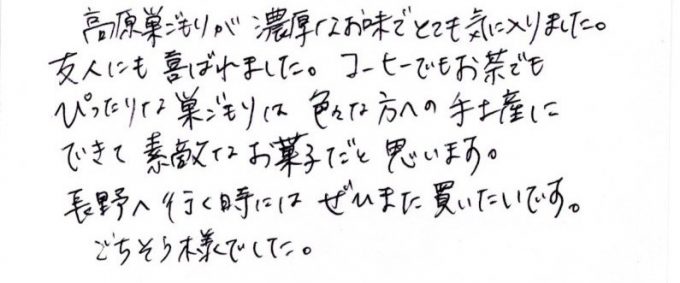 高原巣ごもりが濃厚なお味でとても気に入りました。
友人にも喜ばれました。コーヒーでもお茶でも
ぴったりな巣ごもりは色々な方への手土産に
できて素敵なお菓子だと思います。
長野へ行く時にはぜひまた買いたいです。
ごちそう様でした。